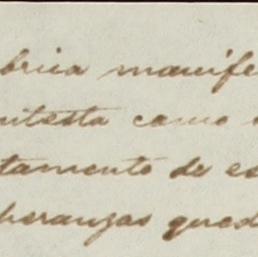 brica manife
nifesta como
tamento de es
peranzas qued